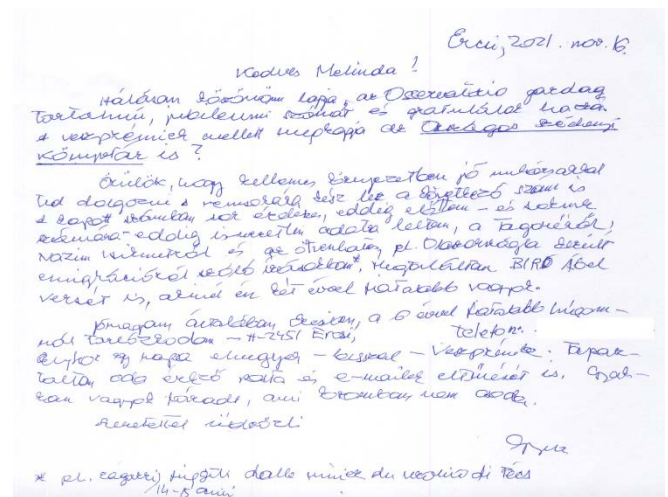 Ercsi, 2021. nov. 16.
Kedves Melinda!
Hálásan köszönöm lapja, az Osservatorio gazdag
tartalmú, jubileumi számát és gratulálok hozzá
a veszprémiek mellett megkapja az Országos Széchenyi
Könyvtár is?
Örülök, hogy kellemes környezetben jó munkatársakkal
tud dolgozni s remélem kész lesz a következő szám is
a kapott számban sok érdekes, eddig – és
számára eddig ismeretlen adatra leltem, a
Nazim és az pl. Olaszországba került
emigrációról szóló írásokban*, Megtaláltam BIRÓ Ábel
versét is, akinél én két évvel fiatalabb vagyok.
Jómagam általában Ercsiben, a 6 évvel fiatalabb húgom-
nál tartózkodom – H-2451 Ercsi, Telefon:
Olykor egy napra elmegyek – busszal – Veszprémbe. Tapasz-
taltam oda érkező posta és e-mailek eltűnését is. Gyak-
ran vagyok fáradt, ami koromban nem csoda.
Szeretettel üdvözli
* pl. dalle miniere di carbone di Pécs
14-15